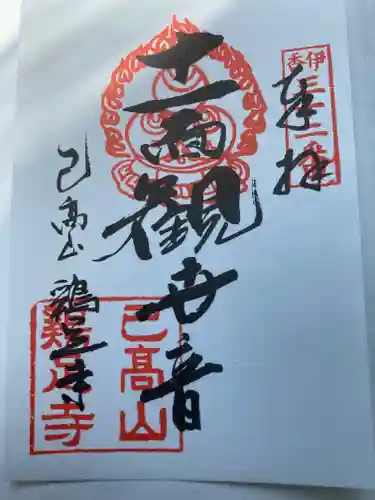 奉拝
伊香三十二番
十一面観世音
己高山 鶏足寺
己高山
鶏足寺